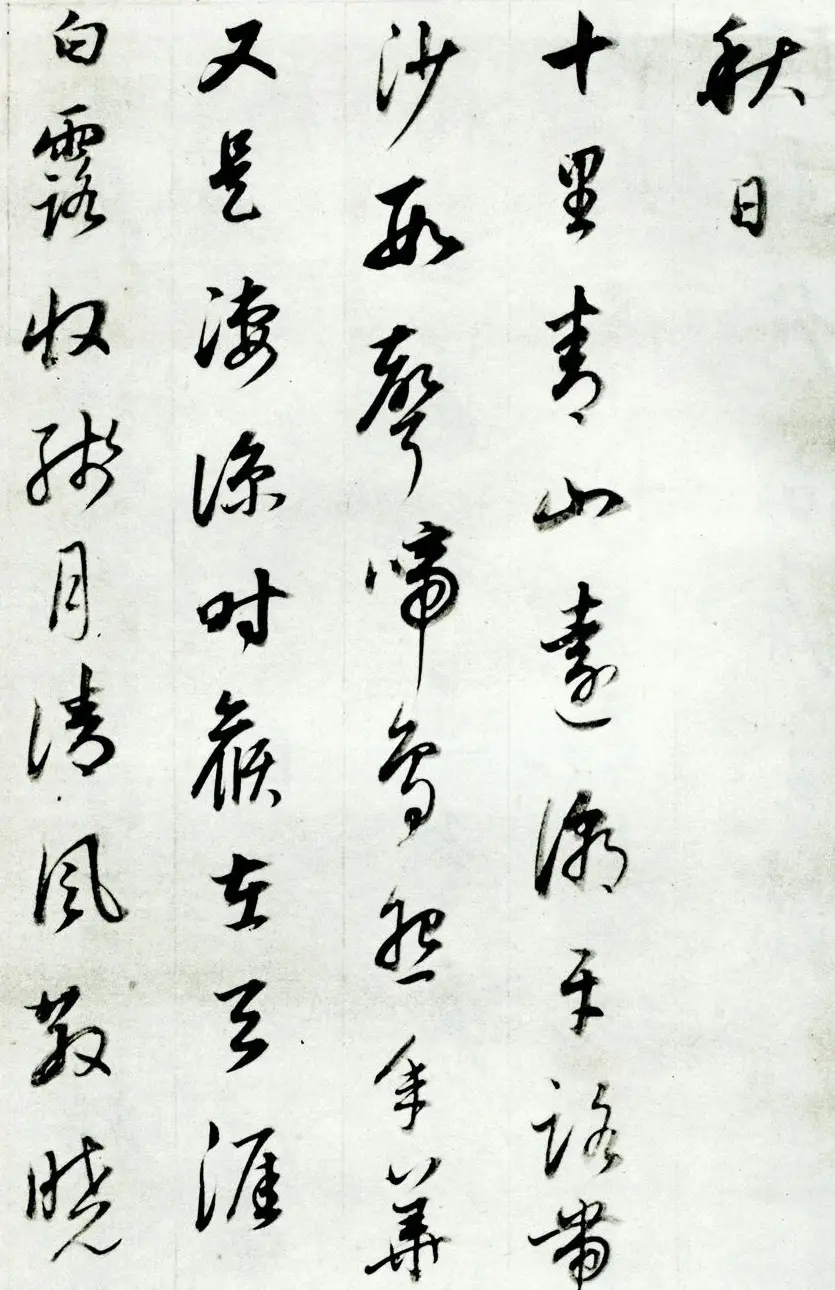 秋日
十里青山遠潮平路帶
沙數聲啼鳥怨年華
又是淒涼時候在天涯
白露收殘月清風散曉